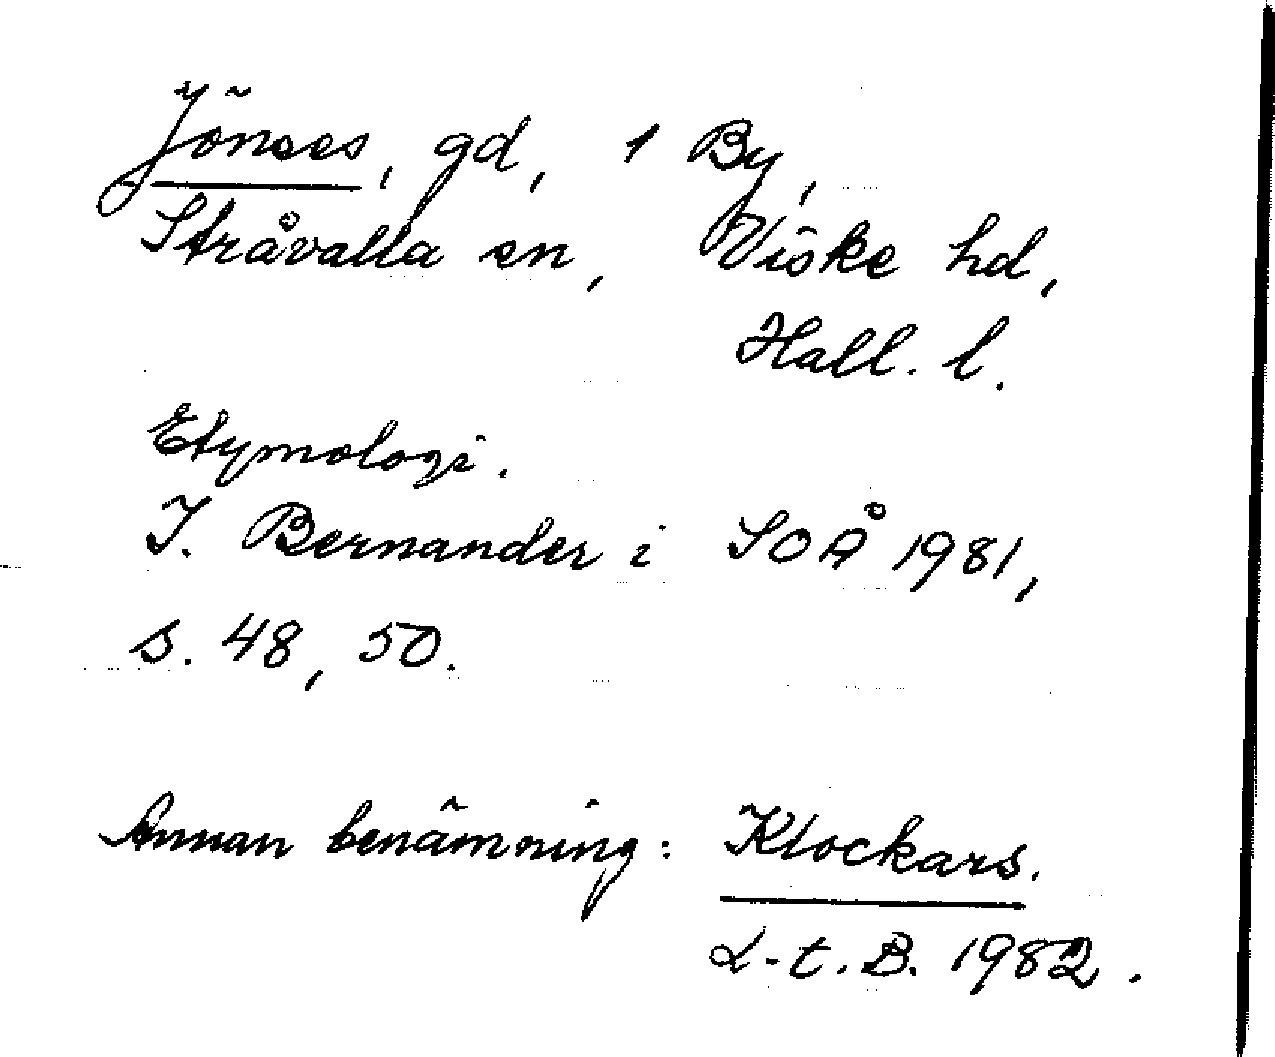 Jönses, gd, 1 By,
Stråvalla sn, Viske hd,
Hall. l.
Etymologi.
I. Bernander i SOÅ 1981,
s. 48, 50.
Annan benämning: Klockars.
L-t. B. 1982.